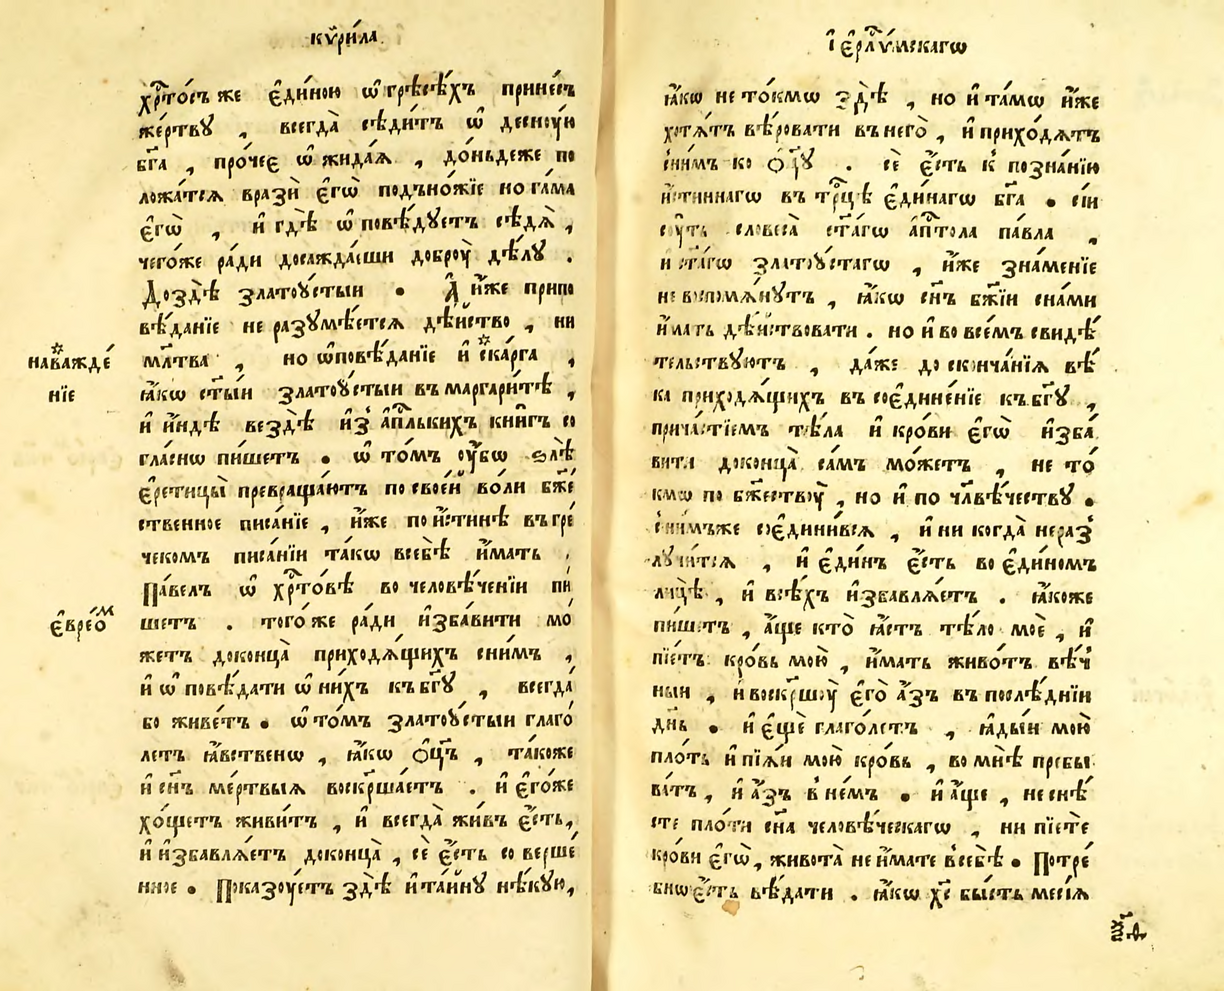 кѷри́ла
хрⷭ҇то́съ же є҆ди́ною ѡ҆ грѣсѣ́хъ принѐсъ
же́ртвꙋ , всегда̀ сѣди́тъ ѡ҆ деснꙋ́ю
бг҃а , про́чеє ѡ҆жида́ѧ , до́ньдеже по
ложа́тсѧ вразѝ є҆гѡ̀ подъно́жїе нога́ма
є҆гѡ̀ , и҆ гдѣ̀ ѡ҆повѣ́дꙋетъ сѣдѧ̀ ,
чего́же ра́ди досажда́еши доброꙋ̀ дѣ́лꙋ .
До здѣ̀ златоꙋ́стыи . А҆ и҆́же припо
вѣ́данїе не разꙋмѣ́етсѧ дѣ́йство , ни
наважде́
мл҃тва , но ѡ҆повѣ́данїе и҆ ска́рга ,
нїе
ꙗ҆́кѡ ст҃ы́и златоꙋ́стыи въ маргари́тѣ ,
и҆ и҆́ндѣ вездѣ̀ и҆з̾ а҆пⷭ҇льскихъ кни́гъ со
гла́снѡ пи́шетъ . ѡ҆ то́мъ ᲂу҆́бѡ ѕлѣ̀
є҆ретицы̀ превраща́ютъ по свое́й во́ли бж҃е
ственное писа́нїе , и҆́же по и҆́стинѣ въ гре́
чекомъ писа́нїи та́кѡ всебѣ̀ и҆́мать .
Па́велъ ѡ҆ хрⷭ҇то́вѣ во человѣ́ченїи пи́
є҆врео́ⷨ
шетъ . того́же ра́ди и҆зба́вити мо́
жетъ доконца̀ приходѧ́щихъ сни́мъ ,
и҆ ѡ҆повѣ́дати ѡ҆ ни́хъ къ бг҃ꙋ , всегда̀
бо живе́тъ . ѡ҆ то́мъ златоꙋ́стыи глаго́
летъ ꙗ҆́вственѡ , ꙗ҆́кѡ ѻ҆ц҃ъ , та́коже
и҆ сн҃ъ ме́ртвыѧ воскрⷭ҇ша́етъ . и҆ є҆го́же
хо́щетъ живи́тъ , и҆ всегда̀ жи́въ є҆́сть,
и҆ и҆збавлѧ́етъ доконца̀ , сѐ є҆́сть соверше́
нное . Показꙋ́етъ здѣ̀ и҆ та́йнꙋ нѣ́кꙋю,
і҆ерⷭ҇ли́мскагѡ
ꙗ҆́кѡ не то́кмѡ здѣ̀ , но и҆ та́мѡ и҆́же
хотѧ́тъ вѣ́ровати въ него̀ , и҆ прихо́дѧтъ
сни́мъ ко ѻ҆ц҃ꙋ̀ . сѐ є҆́сть к̾ позна́нїю
и҆́стиннагѡ въ трⷪ҇цѣ є҆ди́нагѡ бг҃а . сі́и
сꙋ́ть словеса̀ ст҃а́гѡ а҆пⷭ҇тола па́вла ,
и ст҃а́гѡ златоꙋ́стагѡ , и҆́же зна́менїе
не вспомѧ́нꙋтъ , ꙗ҆́кѡ сн҃ъ бж҃їи сна́ми
и҆́мать дѣ́йствовати . но и҆ во все́мъ свидѣ́
тельствꙋютъ , да́же до сконча́нїѧ вѣ́
ка приходѧ́щихъ въ соедине́нїе къ бг҃ꙋ ,
прича́стїемъ тѣ́ла и҆ кро́ви є҆гѡ̀ и҆зба́
вити доконца̀ са́мъ мо́жетъ , не то́
кмѡ по бж҃ествꙋ̀ , но и҆ по чл҃вѣ́чествꙋ .
сни́мъже соедини́всѧ , и҆ никогда̀ нераз̾
лꙋчи́тсѧ , и҆ є҆ди́нъ є҆́сть во є҆ди́номъ
лицѣ̀ , и҆ всѣ́хъ и҆збавлѧ́етъ . ꙗ҆́коже
пи́шетъ , а҆́ще кто̀ ꙗ҆́стъ тѣ́ло моѐ , и҆
пїе́тъ кро́вь мою̀ , и҆́мать живо́тъ вѣ́ч̾
ныи , и҆ воскрⷭ҇шꙋ̀ є҆го̀ а҆́зъ въ послѣ́днїи
дн҃ь . и҆ є҆щѐ глаго́летъ , ꙗ҆ды́и мою̀
пло́ть и҆ пїѧ́и мою̀ кро́вь , во мнѣ̀ пребы
ва́тъ , и҆ а҆́зъ в̾ не́мъ . и҆ а҆́ще , не снѣ́
сте пло́ти сн҃а человѣ́ческагѡ , ни пїе́те
кро́ви є҆гѡ̀, живота̀ не и҆́мате всебѣ̀ . Потре́
бнѡ є҆́сть вѣ́дати . ꙗ҆́кѡ хⷭ҇ бы́сть месі́ѧ